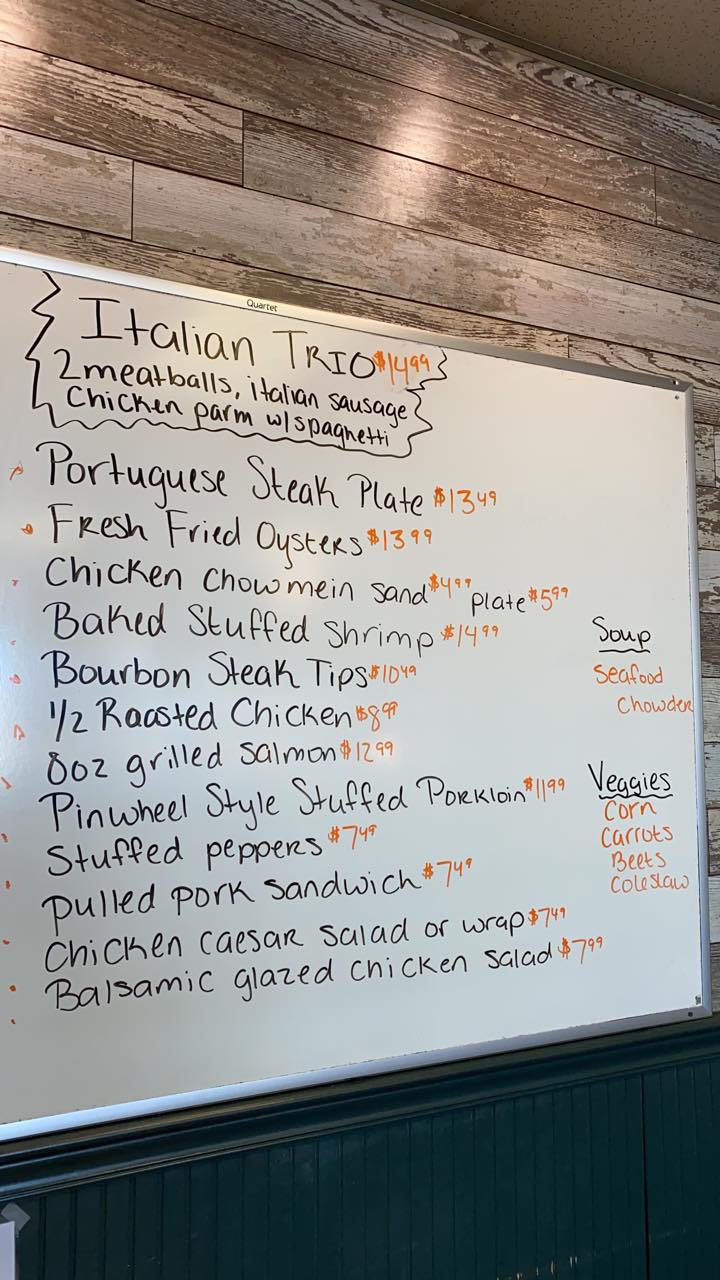 Quartet
Italian TRIO $14.99
2 meatballs, italian sausage
Chicken parm w/spaghetti
Portuguese Steak Plate $13.49
Fresh Fried Oysters $13.99
Chicken chowmein sand $4.99 plate $5.99
Baked Stuffed Shrimp $14.99
Bourbon Steak Tips $10.49
1/2 Roasted Chicken $8.99
8oz grilled salmon $12.99
Pinwheel Style Stuffed Porkloin $11.99
Stuffed peppers $7.49
pulled pork sandwich $7.49
Chicken caesar salad or wrap $7.49
Balsamic glazed chicken salad $7.99
Soup
Seafood
Chowder
Veggies
Corn
Carrots
Beets
Coleslaw